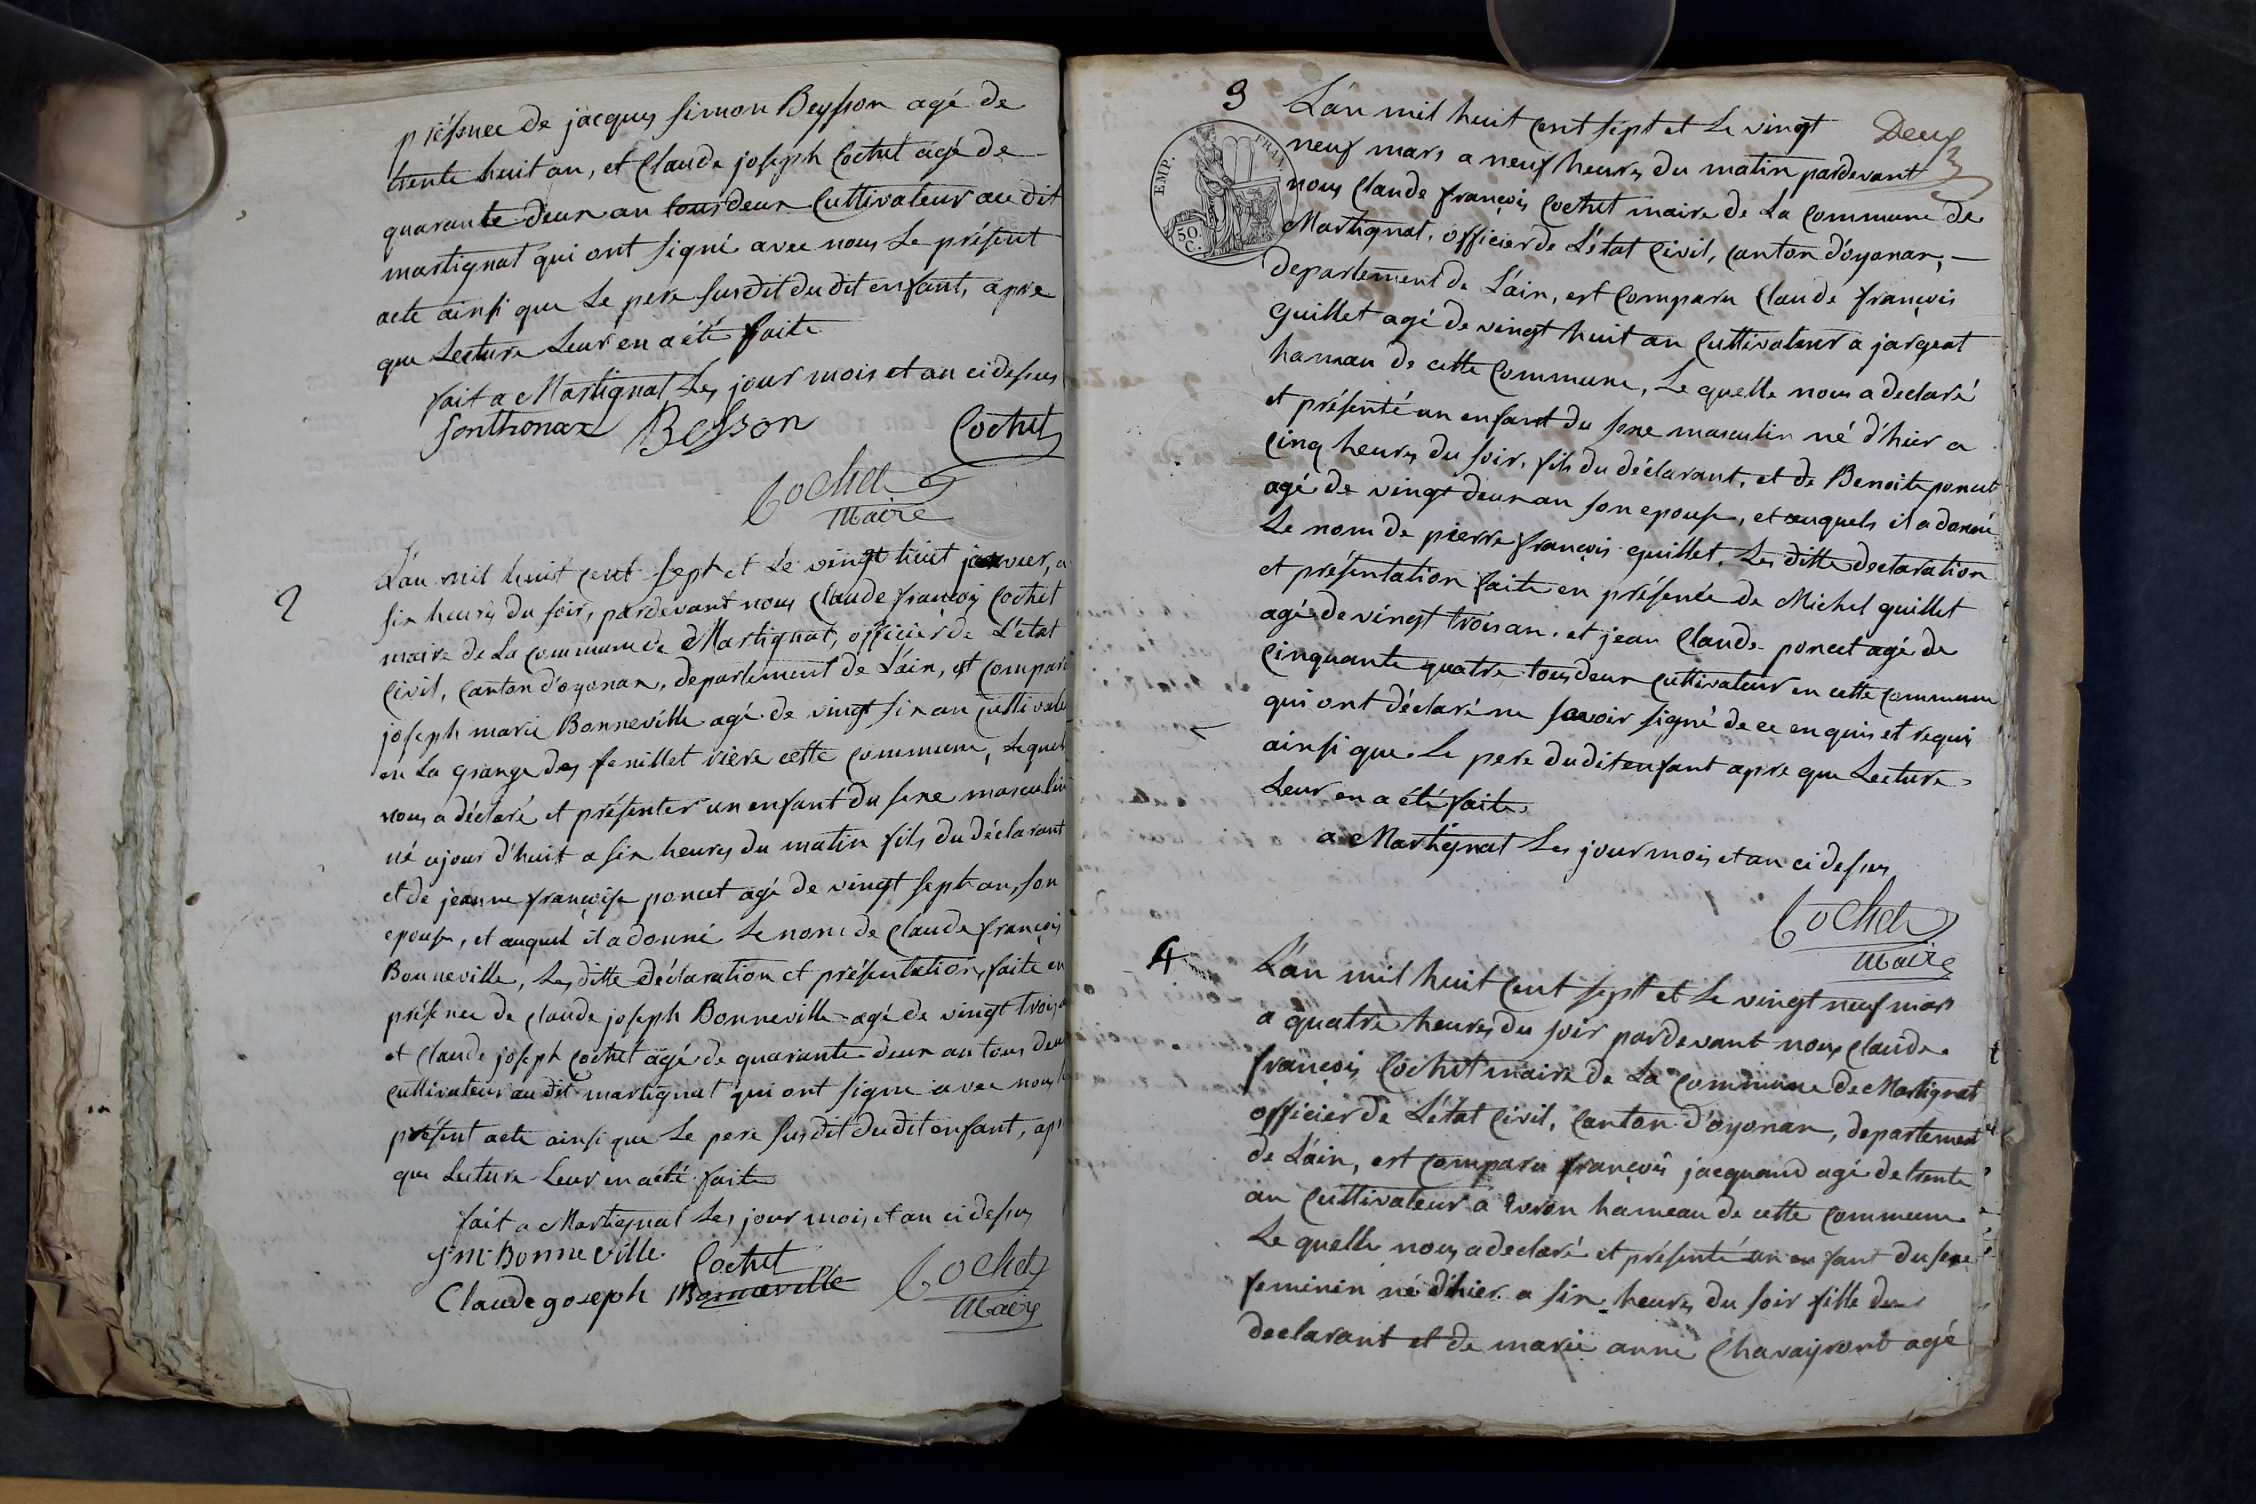 présence de jacques simon Beysson agé de
trente huit an, et Claude joseph Cochet agé de
quarante deux an tous deux Cultivateur au dit
martignat qui ont signé avec nous Le présent
acte ainsi que Le pere susdit dudit enfant, apre
que Lecture Leur en a été faite
fait a Martignat Les jour mois et an ci dessus
Sonthonax Besson Cochet
Cochet
Maire
2
L'an mil huit cent sept et Le vingt huit janvier, a
six heures du soir, pardevant nous Claude françois Cochet
maire de La commune de Martignat, officier de L'état
Civil, Canton d'oyonax, departement de L'ain, est comparu
joseph marie Bonneville agé de vingt six an Cultivateur
en La grange des feuillet riere cette commune, Lequel
nous a déclaré et présenter un enfant du sexe masculin
né ajour d'huit a six heures du matin fils du déclarant
et de jeanne françoise poncet agé de vingt sept an, son
epouse, et auquel il a donné Le nom de Claude françois
Bonneville, Les ditte déclaration et présentation, faite en
présence de Claude joseph Bonneville agé de vingt trois a
et Claude joseph Cochet agé de quarante deux an tous deux
Cultivateur au dit martignat qui ont signe avec nous le
présent acte ainsi que Le pere susdit dudit enfant, apr
que Lecture Leur en a été faite
fait a Martignat Les jour mois et an ci dessus
J. M. Bonneville Cochet
Claude goseph Bonneville Cochet
Maire
3
EMP. FRAN.
50. C.
Deux
L'an mil huit cent sept et Le vingt
neuf mars a neuf heures du matin pardevant
nous Claude françois Cochet maire de La Commune de
Martignat, officier de L'état Civil, Canton d'oyonax,
departement de L'ain, est Comparu Claude françois
guillet agé de vingt huit an Cultivateur a jargeat
hamau de cette Commune, Le quelle nous a declaré
et présenté un enfant du sexe masculin né d'hier a
Cinq heures du soir, fils du déclarant, et de Benoite poncet
agé de vingt deux an son epouse, et auquels il a donné
Le nom de pierre françois guillet, Les ditte declaration
et présentation faite en présence de Michel guillet
agé de vingt trois an, et jean Claude poncet agé de
Cinquante quatre tous deux Cultivateur en cette Commune
qui ont déclaré ne savoir signé de ce enquis et requis
ainsi que Le pere dudit enfant apre que Lecture
Leur en a été faite
a Martignat Les jour mois et an ci dessus
Cochet
Maire
4
L'an mil huit Cent sept et Le vingt neuf mars
a quatre heures du soir pardevant nous Claude
françois Cochet maire de La Commune de Martignat
officier de L'état Civil, Canton d'oyonax, departement
de L'ain, est Comparu françois jacquand agé de trente
an Cultivateur a Evron hameau de cette Commune
Le quelle nous a declaré et présenté un enfant du sexe
feminin né d'hier a six heures du soir fille du
declarant et de marie anne Chavayront agé